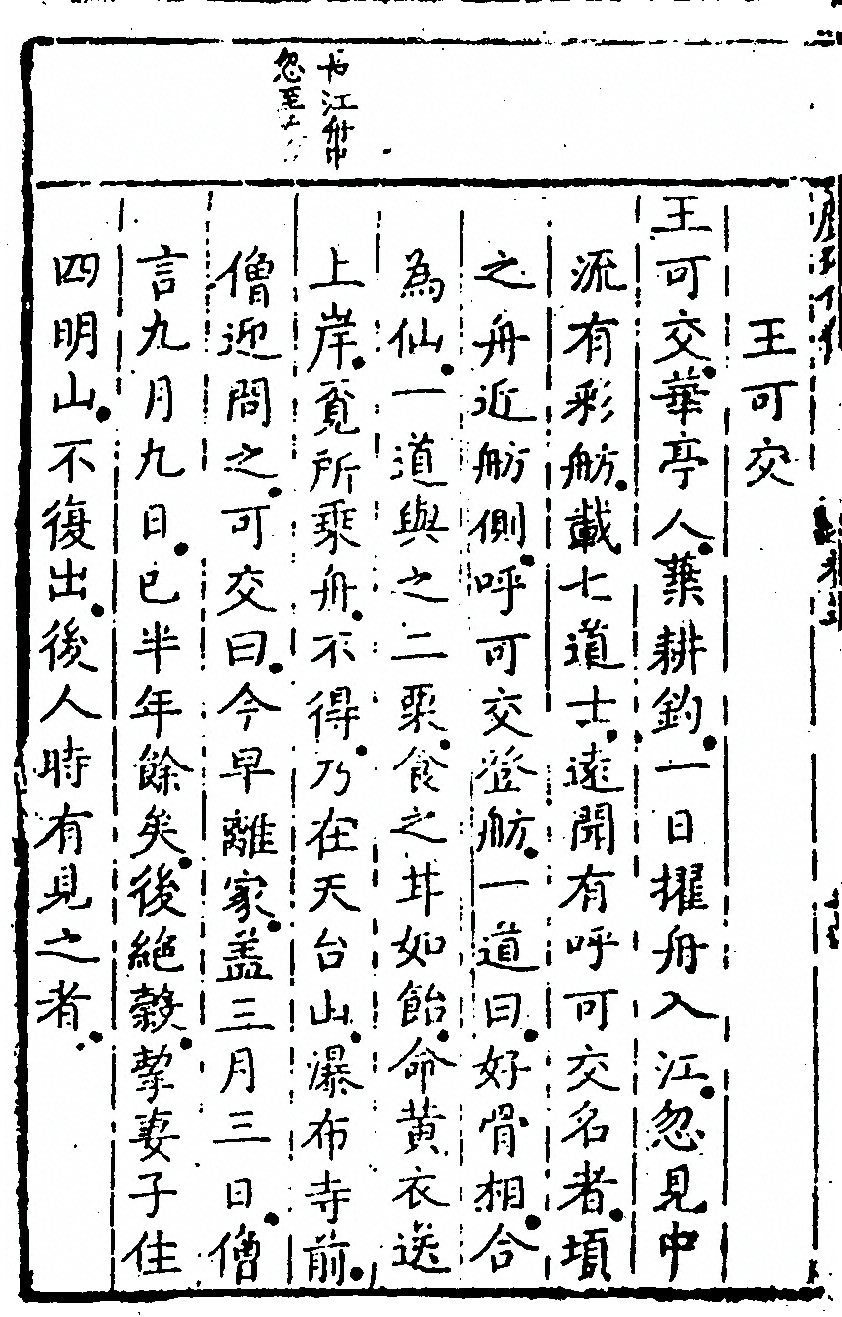 王可交
王可交華亭人業耕釣一日擢舟入江忽見中
流有彩舫載七道士遠聞有呼可交名者頃
之舟近舫側呼可交登舫一道曰好骨相合
為仙一道與之二栗食之甘如飴命黃衣送
上岸覓所乘舟不得乃在天台山瀑布寺前
僧迎問之可交曰今早離家盖三月三日僧
言九月九日已半年餘矣後絕穀挈妻子住
四明山不復出後人時有見之者
江舟中
忽至